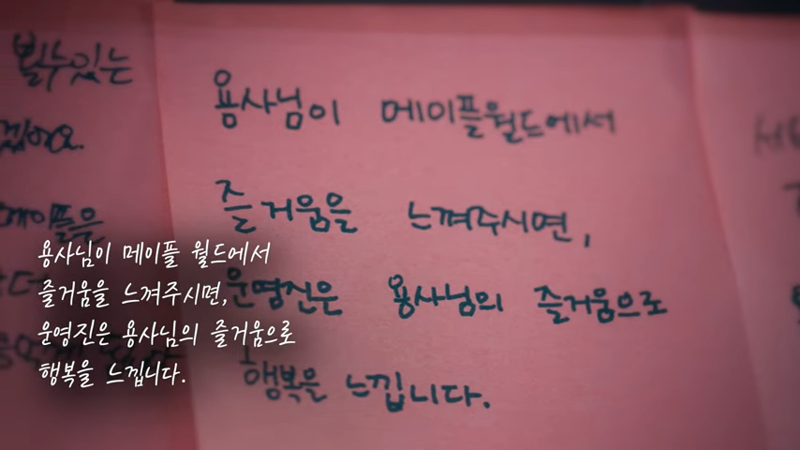 볼수있는
용사님이 메이플월드에서
즐거움을 느껴주시면,
운영진은 용사님의 즐거움으로
행복을 느낍니다.
용사님이 메이플 월드에서
즐거움을 느껴주시면,
운영진은 용사님의 즐거움으로
행복을 느낍니다.